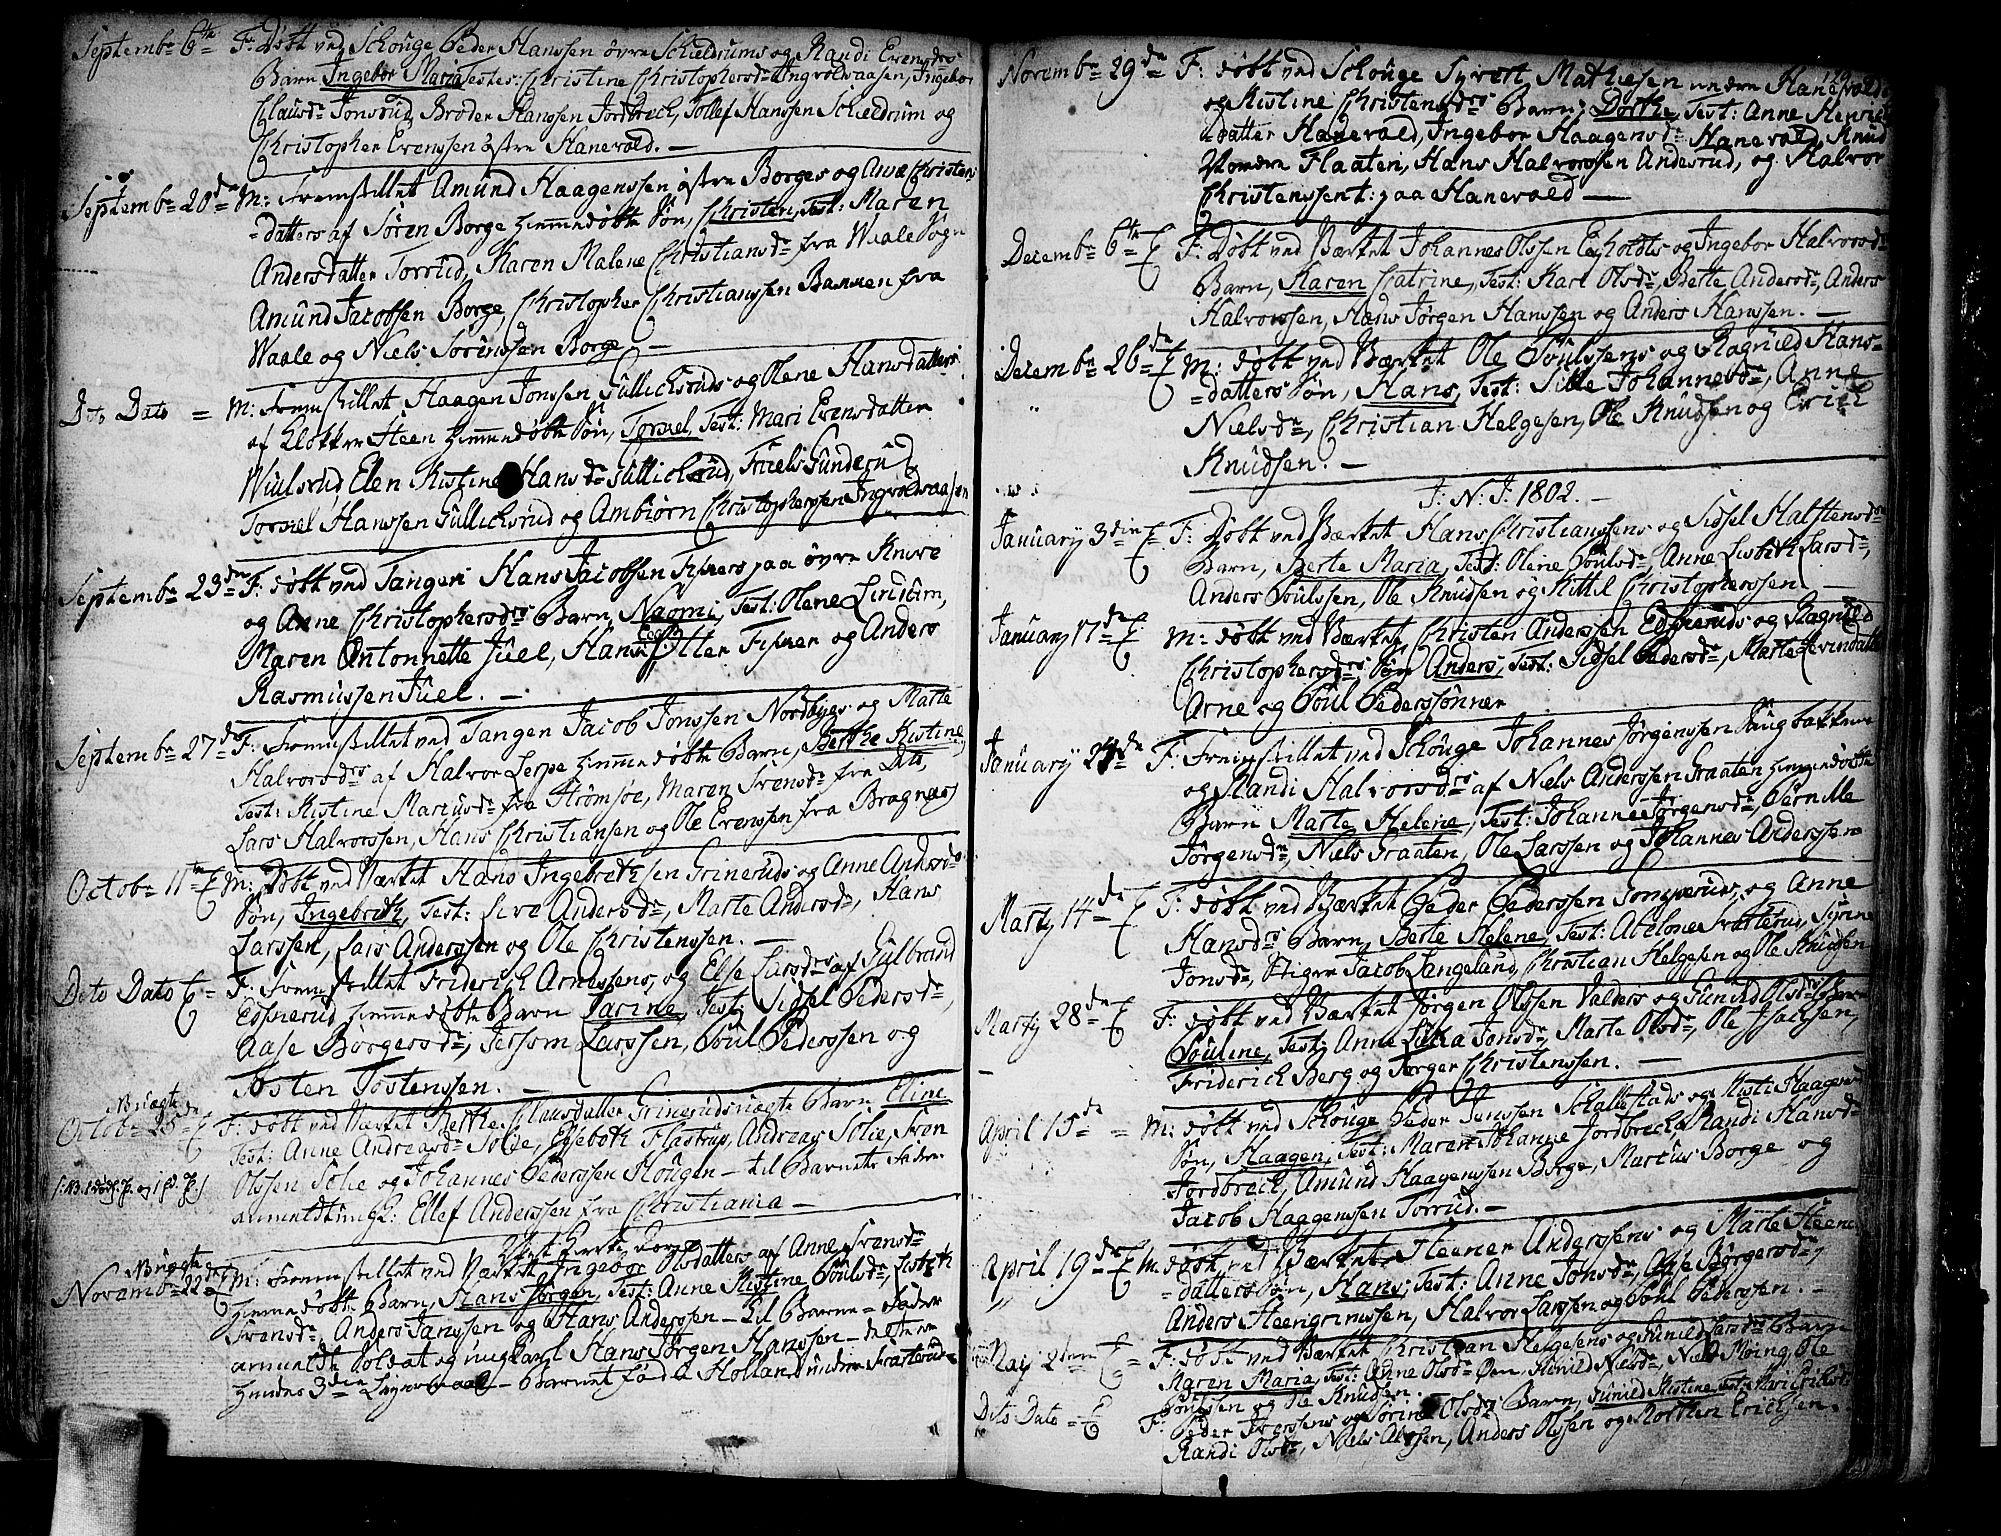 Septembr 6te F: Døbt ved Schouge Peder Hanssen øvre Schieldrums og Randi Evensdrs
Barn Ingebor Maria Testes: Christine Christophersdr Ingvoldsaasen, Ingebor
Clausdr Jonsrud, Brøder Hanssen Jordbreck, Tollef Hanssen Schieldrum og
Christopher Evenssen østre Hanevold. —
Septembr 20de M: Fremstillet Amund Haagenssen østre Borges og Anne Christens
datters af Søren Borge hiemmedøbte Søn, Christen, Test: Maren
Andersdatter Torrud, Karen Malene Christiansdr fra Waale Sogn
Amund Jacobsen Borge, Christopher Christianssen Bannen fra
Waale og Niels Sørenssen Borge —
Dito Dato = M: Fremstillet Haagen Jonssen Gullichsruds og Olene Hansdatters
af Klokker Steen hiemmedøbte Søn, Torsæl, Test: Mari Evensdatter
Wiulsrud, Elen Kistine Hansdr Gullichsrud, Truels Gunderud
Torsæl Hanssen Gullichsrud og Ambiørn Christopherssen Ingvoldsaasen
Septembr 23de F: døbt ved Tangen Hans Jacobsen Fiskers paa øvre Knive
og Anne Christophersdrs Barn, Naomi, Test: Olene Lindum,
Maren Antonnette Juel, Hans Otter Fisker og Anders
Rasmussen Juel. —
Septembr 27de F: Fremstillet ved Tangen Jacob Jonssen Nordbyes og Marte
Halvorsdrs af Halvor Lerpe hiemmedøbte Barn, Berthe Kistine,
Test: Kistine Marcusdr fra Strømsøe, Maren Svensdr fra Dito,
Lars Halvorssen, Hans Christiansen og Ole Evenssen fra Bragnæs
Octobr 11te E M: Døbt ved Værket Hans Ingebrethsen Grineruds og Anne Andersdrs
Søn, Ingebreth, Test: Live Andersdr, Marte Andersdr, Hans
Larssen, Lars Anderssen og Ole Christenssen. —
Dito Dato E = F: Fremstillet Friderich Arnessens og Else Larsdrs af Gulbrand
Edsnerud hiemmedøbte Barn Larine, Test: Sidsel Pedersdr,
Aase Børgersdr, Jersom Larssen, Poul Pederssen og
Tosten Tostenssen. —
NB: uægte
Octobr 25de E F: døbt ved Værket Berthe Clausdatter Grineruds uægte Barn Eline
Test: Anne Andreasdr Solie, Elsebeth Flastrup, Andreas Solie, Sven
Olssen Solie og Johannes Pederssen Hougen — til Barnets Fader
anmeldt ungk: Ellef Anderssen fra Christiania —
NB uægte
Novembr 22de E M: Fremstillet ved Værket Ingebor Olsdatters af Anne Svensdr
hiemmedøbte Barn, Hans Jørgen, Test: Anne Kistine Poulsdr, Lisbeth
Svensdr, Anders Janssen og Hans Anderssen — til Barne-Fader
anmeldte Soldat og ungkarl Hans Jørgen Hanssen — dette er
hendes 3die Leyermaal — Barnet fød a Holland under Frasterud
Novembr 29de F: døbt ved Schouge Syvert Mathiesen nedre Hanevolds
og Kistine Christensdrs Barn, Dorthe, Test: Anne Henrichs
datter Hanevold, Ingebor Haagensdr Hanevold, Knud
Flaaten, Hans Halvorssen Anderud, og Halvor
Christenssen t: paa Hanevold —
Decembr 6te E F: Døbt ved Værket Johannes Olssen Egholdts og Ingebor Halvorsdrs
Barn, Karen Catrine, Test: Kari Olsdr, Berte Andersdr, Anders
Halvorssen, Hans Jørgen Hanssen og Anders Hanssen. —
Decembr 26de E M: døbt ved Værket Ole Poulssens og Ragnild Hans-
datters Søn, Hans, Test: Sille Johannesdr, Anne
Nielsdr, Christian Helgesen, Ole Knudsen og Erich
Knudsen. —
J: N: J: 1802. —
January 3die E F: Døbt ved Værket Hans Christianssens og Sidsel Halstensdrs
Barn, Berte Maria, Test: Olene Poulsdr, Anne Lisbeth Larsdr,
Anders Poulssen, Ole Knudsen og Kittil Christopherssen. —
January 17de E M: døbt ved Værket, Christen Anderssen Edsneruds og Ragnild
Christophersdrs Søn Anders, Test: Sidsel Pedersdr, Marte Evindatter
Arne og Poul Pederssønner
January 24de F: Fremstillet ved Schouge Johannes Jørgenssen Haugbakkens
og Randi Halvorsdrs af Niels Anderssen Graaten hiemmedøbte
Barn Marte Helene, Test: Johanne Jørgensdr, Pernille
Jørgensdr, Niels Graaten, Ole Larssen og Johannes Anderssen
Marty 14de E F: døbt ved Værket Peder Pederssen Tomseruds, og Anne
Hansdrs Barn, Berte Helene, Test: Abelone Frasterud, Syrine
Jonsdr, Stiger Jacob Langelund, Christian Helgesen og Ole Knudsen
Marty 28de E F: døbt ved Værket Jørgen Olssen Valders og Gunild Olsdrs Barn
Pouline, Test: Anne Lukia Jonsdr, Marte Olsdr, Ole Isacssen,
Friderich Berg og Jørger Christenssen. —
April 15de = M: døbt ved Schouge Peder Jenssen Schallestads og Kisti Haagensdrs
Søn, Haagen, Test: Maren Johanne Jordbreck, Randi Hansdr
Jordbreck, Amund Haagenssen Borge, Marcus Borge og
Jacob Haagenssen Torrud. —
April 19de E M: døbt ved Værket Steener Anderssens og Marte Steener
datters Søn, Hans, Test: Anne Jonsdr, Aase Børgersdr,
Anders Steengrimssen, Halvor Larssen og Poul Pederssen. —
May 2den E = F: døbt ved Værket Christian Helgesens og Gunild Larsdrs Barn
Maren Maria, Test: Anne Olsdr Øen, Gunild Nielsdr, Niels Moing, Ole
Poulssen og Ole Knudsen.
Dito Dato = E F: Peder Iverssens og Sørine Olsdrs Barn, Gunild Kistine, Test: Mari Erichsdr
Randi Olsdr, Niels Abessen, Anders Olssen og Morthen Erichsen.